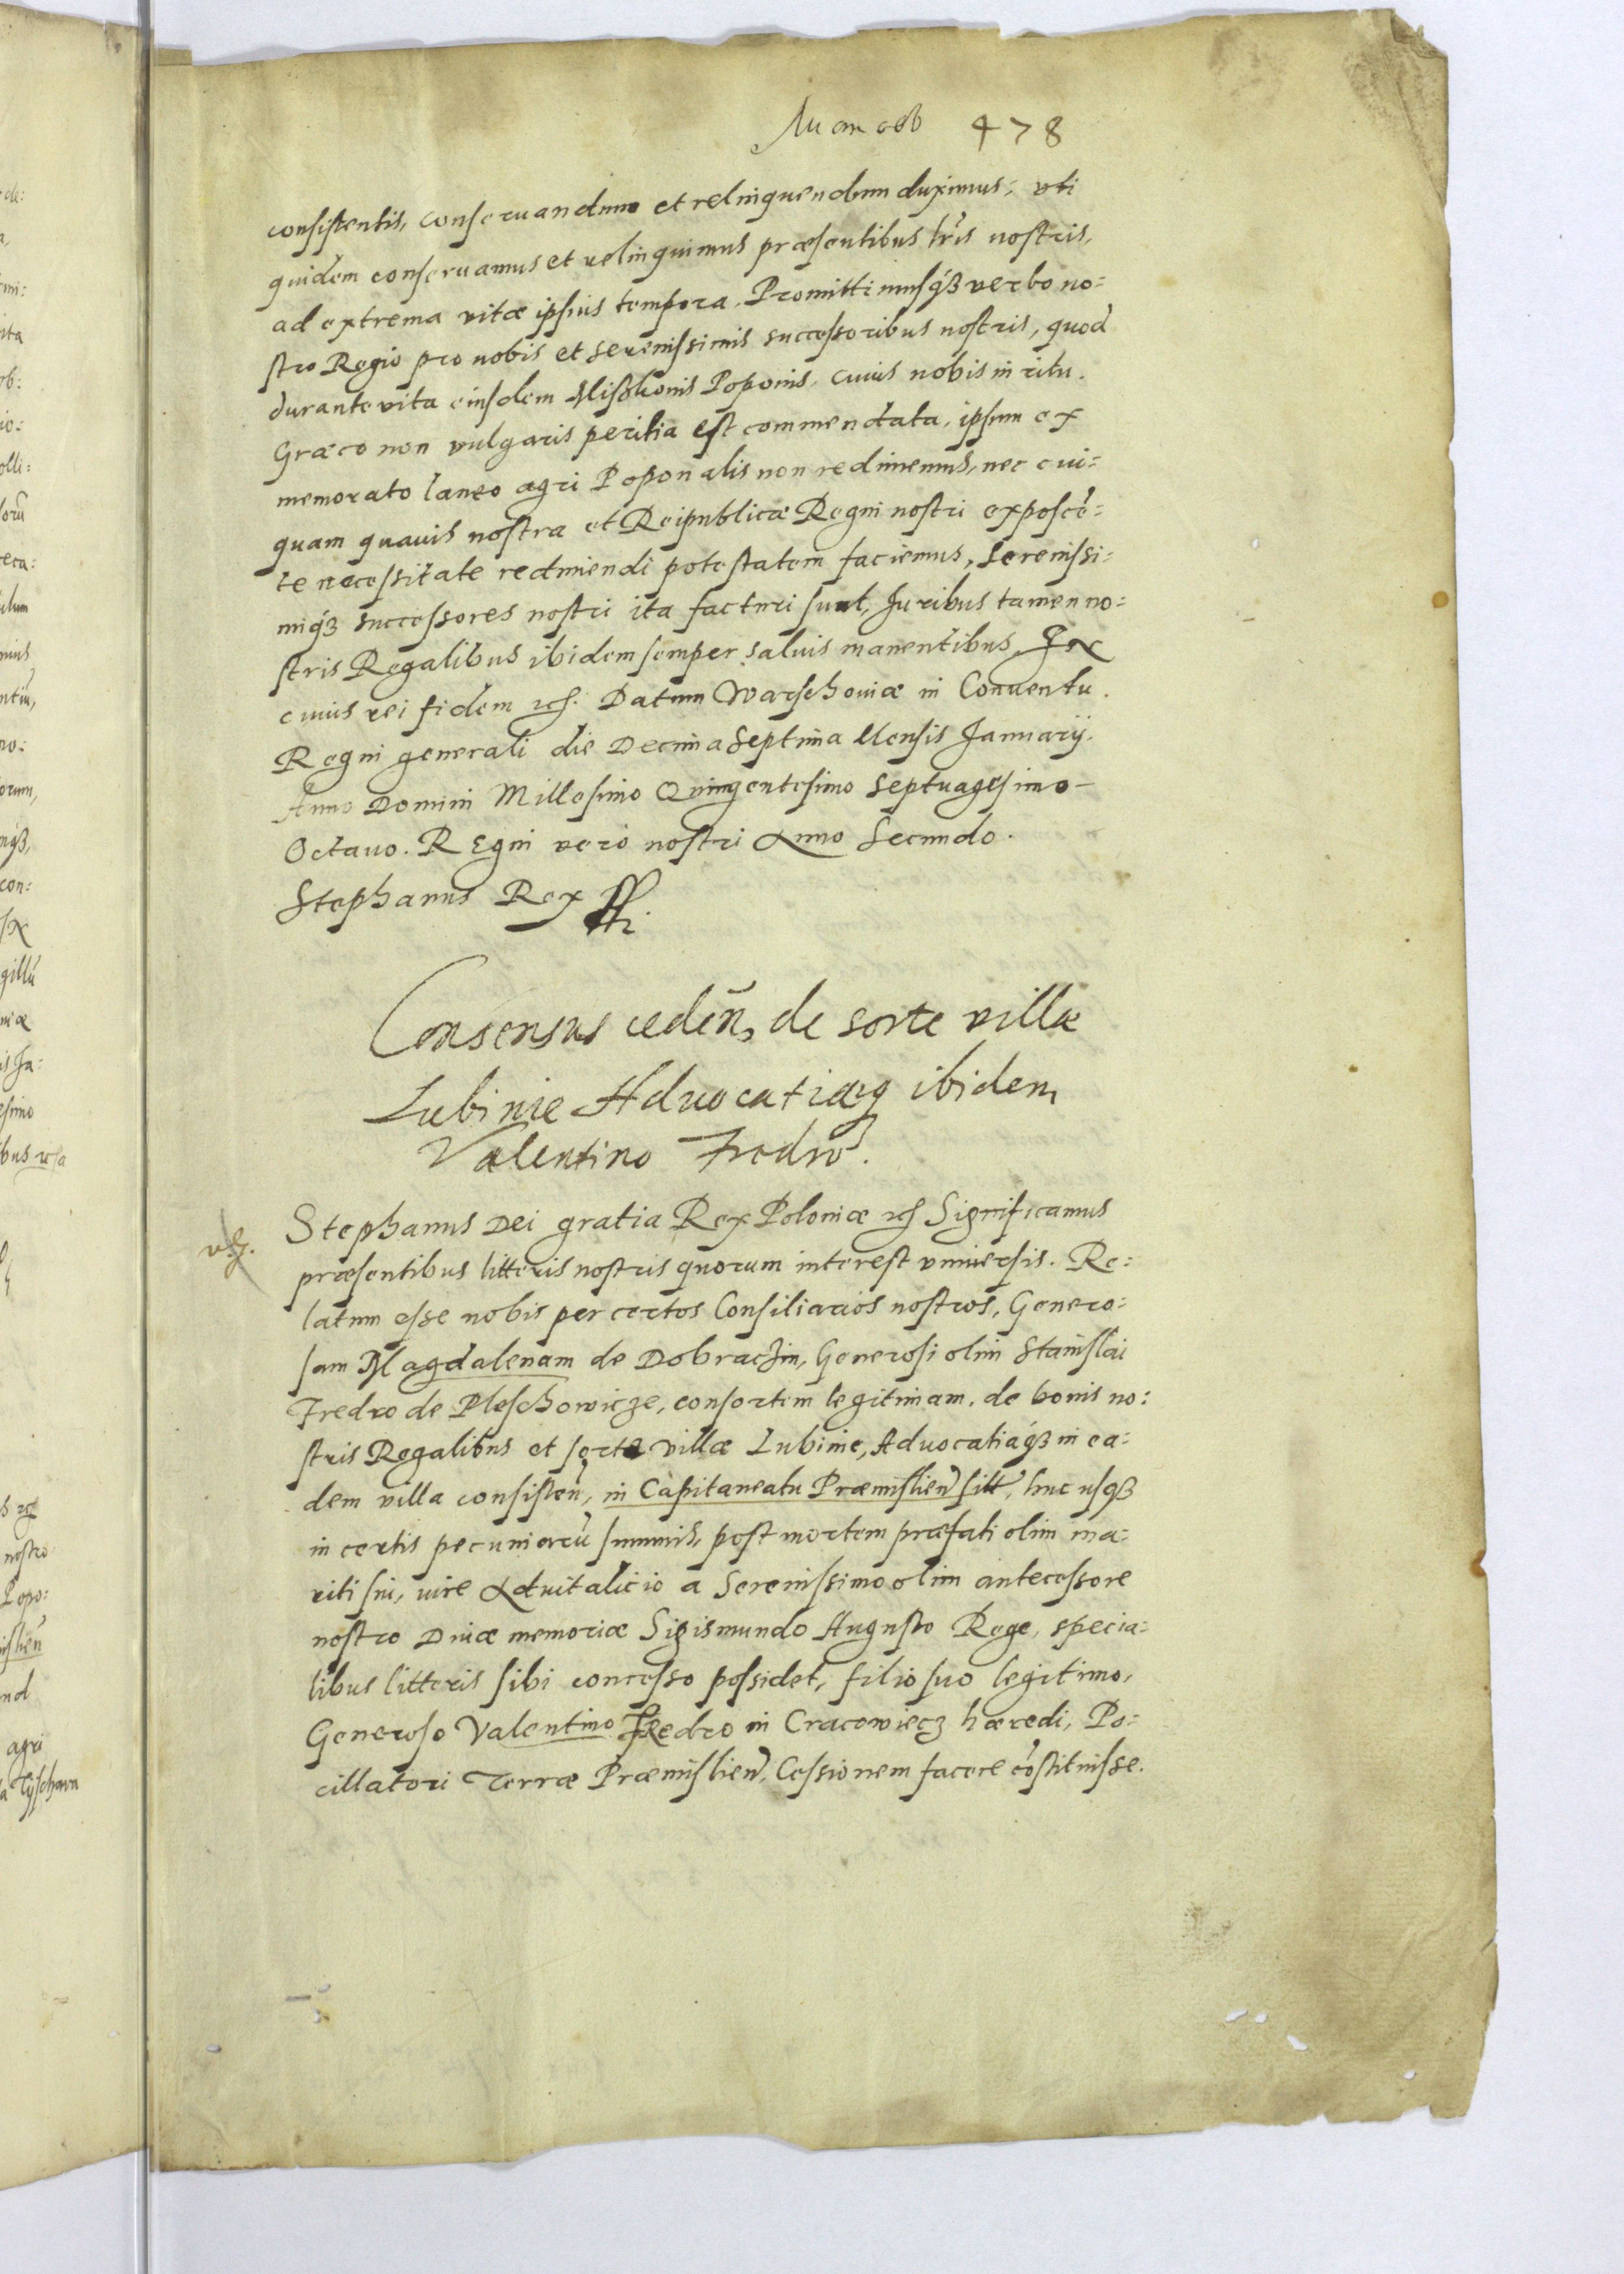 478
consistentis, conseruandum et relinquendum duximus: vti
quidem conseruamus et relinquimus præsentibus lr̃is nostris,
ad extrema vitæ ipsius tempora. Promittimusq́ꝫ verbo no:
stro Regio pro nobis et Serenissimis successoribus nostris, quod
durante vita eiusdem Poponis, cuius nobis in ritu
Græco non vulgaris peritia est commendata, ipsum ex
memorato laneo agri Poponalis non redimemus, nec cui:
quam quauis nostra et Reipublicæ Regni nostri exposcẽ:
te necessitate redimendi potestatem faciemus, Serenissi:
miq́ꝫ successores nostri ita facturi sunt, Iuribus tamen no:
stris Regalibus ibidem semper saluis manentibus. In
cuius rei fidem etc. Datum Warschouiæ in Conuentu
Regni generali die Decima Septima Mensis Ianuarij.
Anno Domini Millesimo Quingentesimo Septuagesimo
Octauo. Regni vero nostri Anno Secundo.
Stephanus Rex
Consensus ceden̄, de sorte villæ
Lubinie Aduocatiæq ibidem
Valentino Fredro.
Stephanus Dei gratia Rex Poloniæ etc Significamus
præsentibus litteris nostris quorum interest vniuersis. Re:
latum esse nobis per certos Consiliarios nostros, Genero:
sam Magdalenam de Dobraczin, Generosi olim Stanislai
Fredro de Pleschowicze, consortem legitimam, de bonis no:
stris Regalibus et sorte villæ Lubinie, Aduocatiáq́ꝫ in ea:
dem villa consisten̄, in Capitaneatu Præmislien̄ sitt, huc usq́ꝫ
in certis pecuniarũ summis, post mortem præfati olim ma:
riti sui, iure Aduitalicio a Serenissimo olim antecessore
nostro Diuæ memoriæ Sigismundo Augusto Rege, specia:
libus litteris sibi concesso possidet, filio suo legitimo,
Generoso Valentino Fredro in Cracowiecz hæredi, Po:
cillatori Terræ Præmislien̄, Cessionem facere cõstituisse.